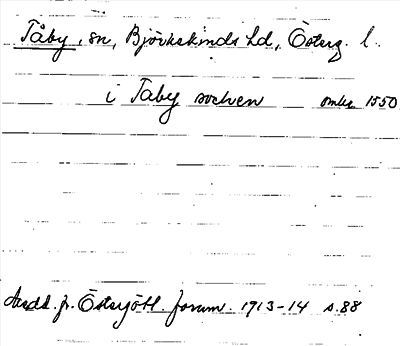 Tåby, sn, Björkekinds hd, Österg. l.
i Tåby socken omkr 1550
Medd. fr. Östergötl. fornm. 1913-14 s. 88